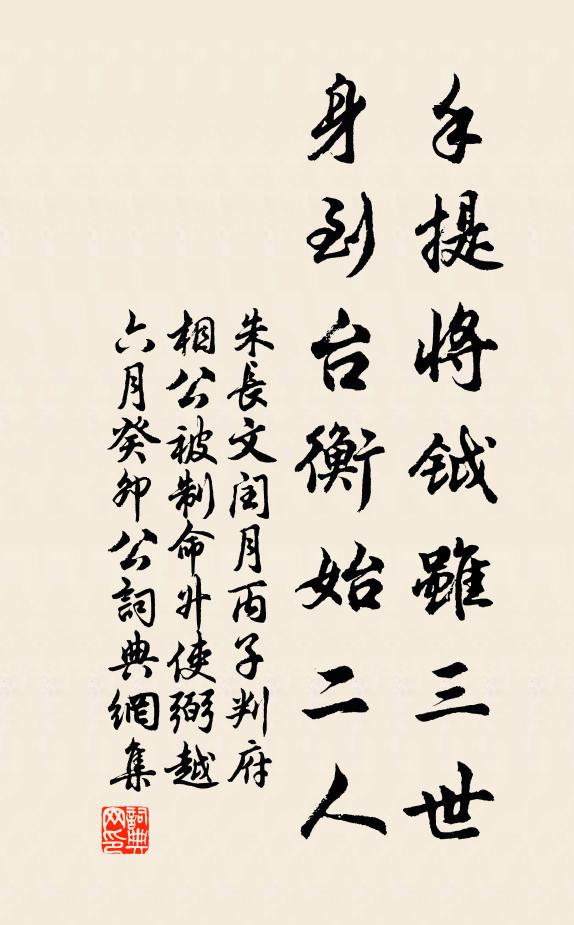 手提將鉞雖三世
身到台衡始二人
朱長文閏月丙子判府
相公被制命升使弼越
六月癸卯公詞典網集
詞典網印